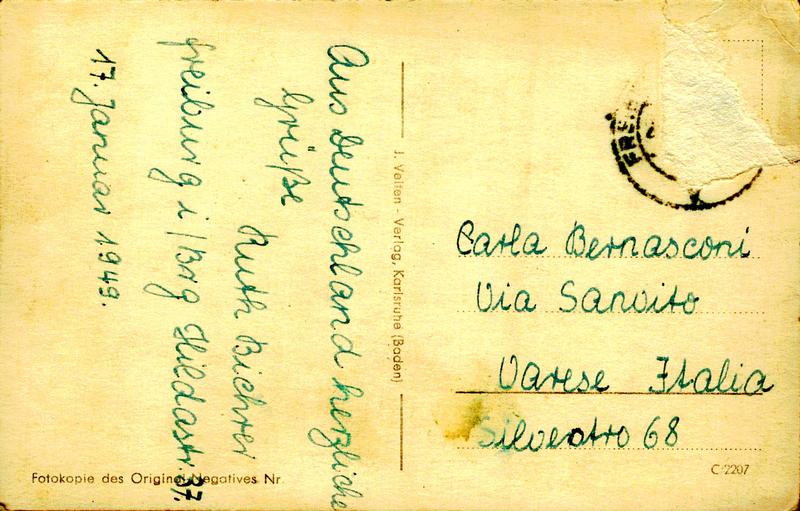 Aus Deutschland herzliche
Grüße
Ruth Bichrei
Freiburg i/Brg Hildastr. 37.
17. Januar 1949.
J. Velten - Verlag, Karlsruhe (Baden)
Carla Bernasconi
Via Sanvito
Varese Italia
Silvestro 68
Fotokopie des Original-Negatives Nr.
C 2207